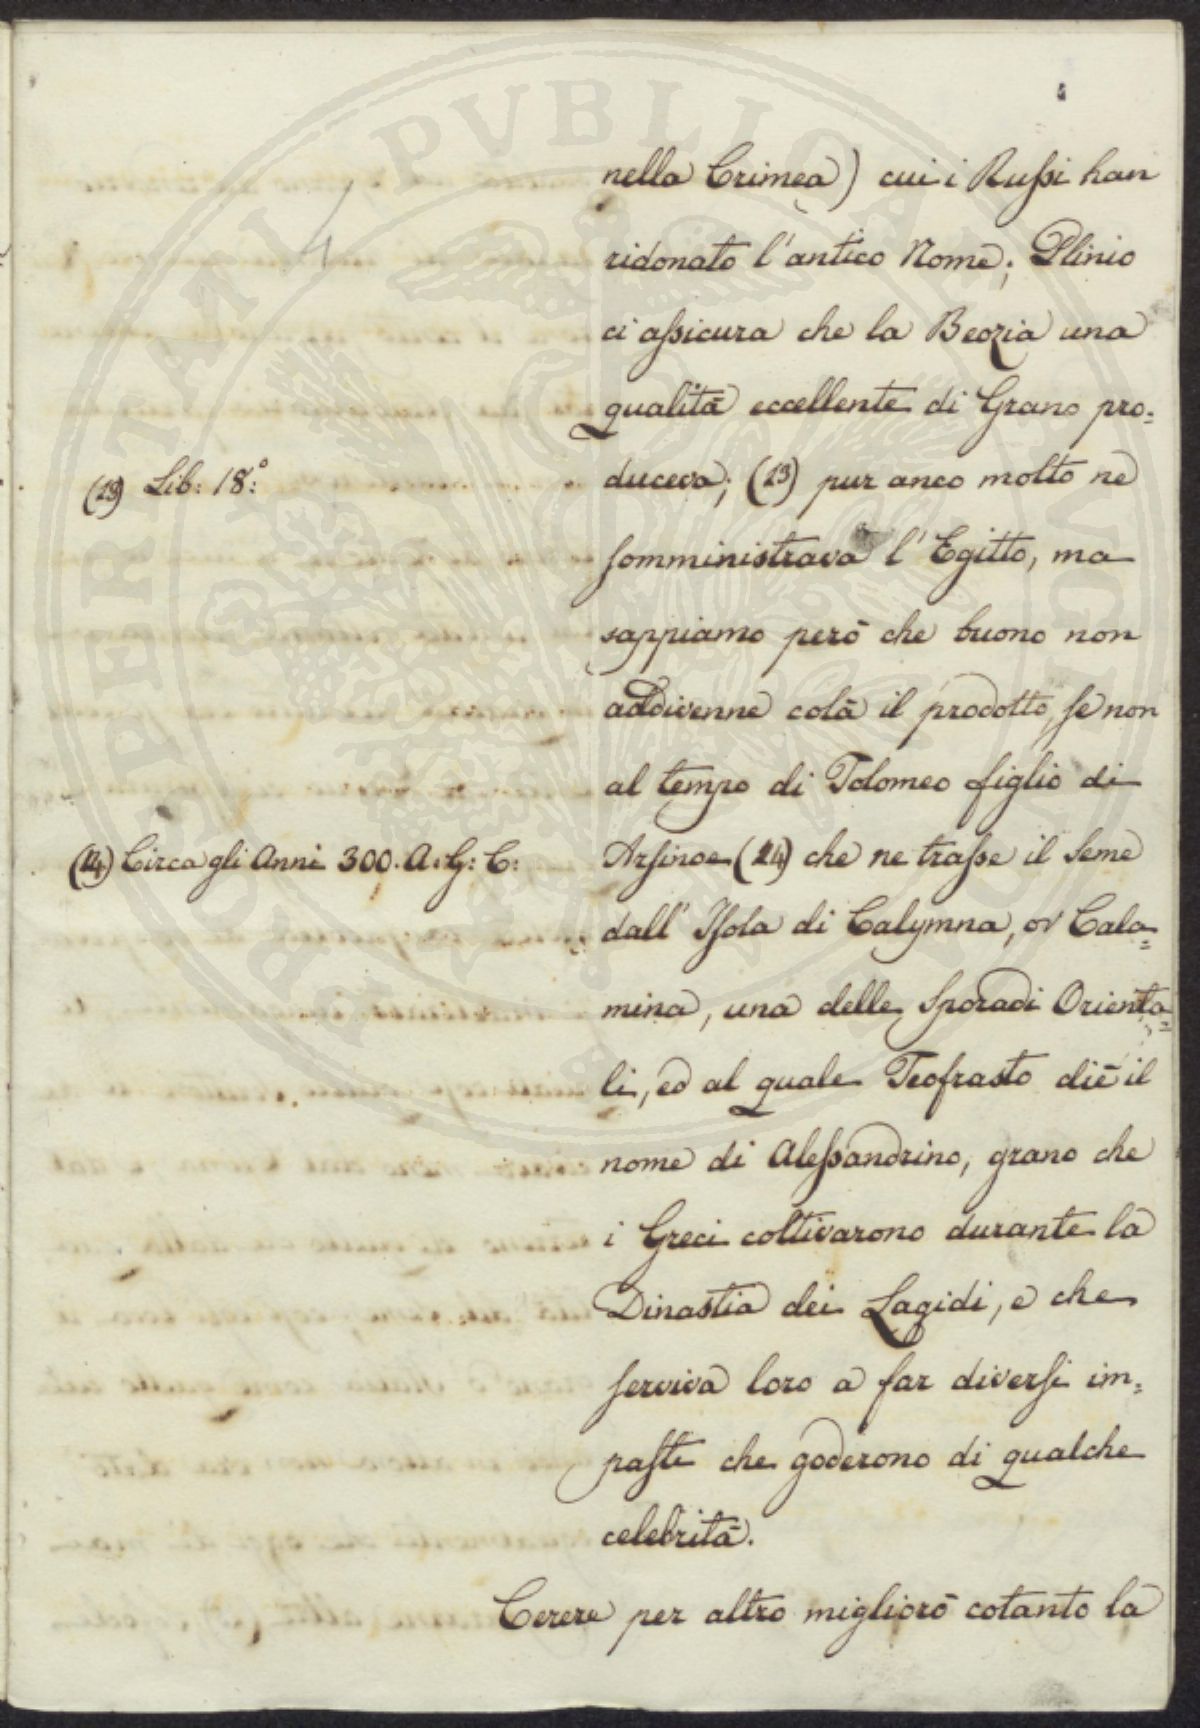 nella Crimea) cui i Russi han
ridonato l'antico Nome; Plinio
ci assicura che la Beozia una
qualità eccellente di Grano pro=
duceva; (13) pur anco molto ne
somministrava l'Egitto, ma
sappiamo però che buono non
addivenne colà il prodotto, se non
al tempo di Tolomeo figlio di
Arsinoe (14) che ne trasse il seme
dall'Isola di Calymna, or Cala=
mina, una delle Sporadi Orienta=
li, ed al quale Teofrasto diè il
nome di Alessandrino, grano che
i Greci coltivarono durante la
Dinastia dei Lagidi, e che
serviva loro a far diversi im=
paste che goderono di qualche
celebrità.
Cerere per altro migliorò cotanto la
(13) Lib: 18:°
(14) Circa gli Anni 300. A: G: C:
PERUSIA AUGUSTA PROSPERITATI PVBLICAE